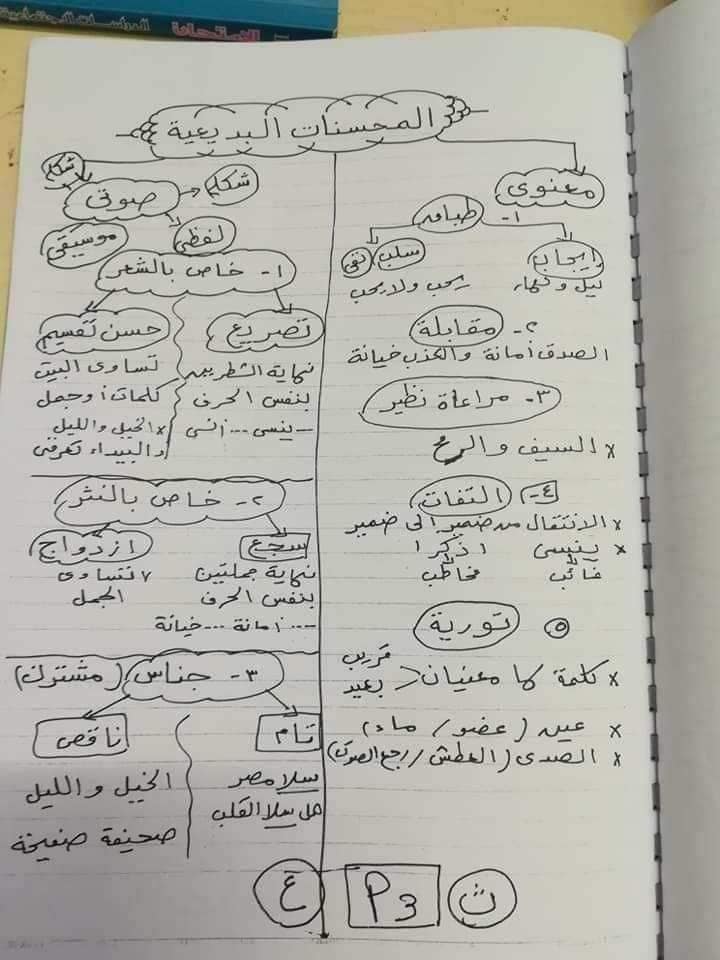 الامتحان الدراسات الاجتماعية
المحسنات البديعية
معنوى
١- طباق
إيجاب
سلب
نفى
ليل ونهار
يحب ولا يحب
٢- مقابلة
الصدق أمانة والكذب خيانة
٣- مراعاة نظير
× السيف والرمح
٤- التفات
× الانتقال من ضمير إلى ضمير
× ينسى اذكرا
غائب مخاطب
٥ تورية
× كلمة لها معنيان قريب
بعيد
× عين (عضو / ماء)
× الصدى (العطش / رجع الصوت)
شكل
صوتى
شكل
لفظى
موسيقى
١- خاص بالشعر
تصريع
نهاية الشطرين
بنفس الحرف
ينسى ... أنسى
حسن تقسيم
تساوى البيت
كلمات أو جمل
× الخيل والليل
والبيداء تعرفنى
٢- خاص بالنثر
سجع
نهاية جملتين
بنفس الحرف
... أمانة ... خيانة
ازدواج
تتساوى
الجمل
٣- جناس (مشترك)
تام
سلا مصر
هل سلا القلب
ناقص
الخيل والليل
صحيفة صفيحة
ث
ع